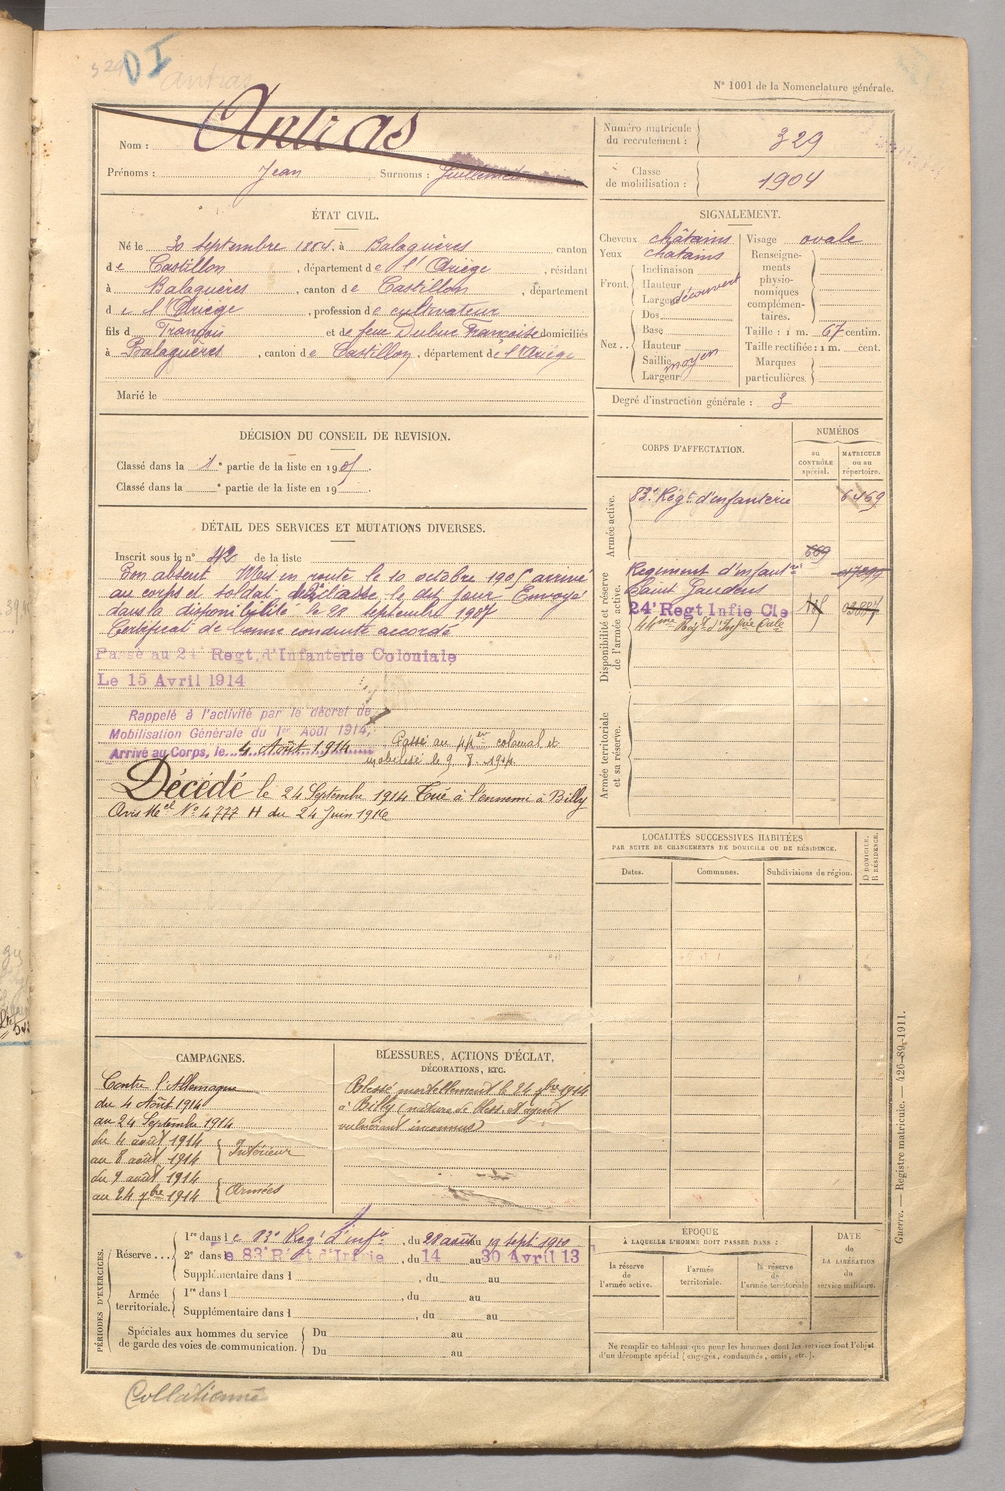 329 DI Antras
N° 1001 de la Nomenclature générale.
Nom : Antras
Prénoms : Jean Surnoms :
Numéro matricule du recrutement : 329
Classe de mobilisation : 1904
ÉTAT CIVIL.
Né le 30 septembre 1884, à Balaguères canton
de Castillon, département de l'Ariège, résidant
à Balaguères, canton de Castillon, département
de l'Ariège, profession de cultivateur
fils de François et de feue Dubuc Françoise domiciliés
à Balaguères, canton de Castillon, département de l'Ariège
Marié le
SIGNALEMENT.
Cheveux châtains
Yeux châtains
Front. Inclinaison
Hauteur
Largeur découvert
Nez. Dos
Base
Hauteur
Saillie moyen
Largeur
Visage ovale
Renseignements physionomiques complémentaires.
Taille : 1 m. 67 centim.
Taille rectifiée : 1 m. cent.
Marques particulières.
Degré d'instruction générale : 3
DÉCISION DU CONSEIL DE REVISION.
Classé dans la 1e partie de la liste en 1905.
Classé dans la e partie de la liste en 19
DÉTAIL DES SERVICES ET MUTATIONS DIVERSES.
Inscrit sous le n° 42 de la liste
Bon absent Mis en route le 10 octobre 1905 arrivé
au corps et soldat de 2e classe, le dit jour Envoyé
dans la disponibilité le 28 septembre 1907
Certificat de bonne conduite accordé
Passé au 24 Regt. d'Infanterie Coloniale
Le 15 Avril 1914
Rappelé à l'activité par le décret de
Mobilisation Générale du 1er Août 1914,
Arrivé au Corps, le 4 Août 1914
Passé au 44me colonial et
mobilisé le 9. 8. 1914.
Décédé le 24 Septembre 1914 Tué à l'ennemi à Billy
Avis Mel N° 4777 H du 24 Juin 1916
CORPS D'AFFECTATION.
NUMÉROS
au CONTRÔLE spécial.
MATRICULE ou au répertoire.
Armée active.
83e Régt. d'infanterie 6469
669
Disponibilité et réserve de l'armée active.
Régiment d'Infantie
Saint Gaudens
24e Regt Infie Cle
44me Régt d'Infie Cole
Armée territoriale et sa réserve.
LOCALITÉS SUCCESSIVES HABITÉES
PAR SUITE DE CHANGEMENTS DE DOMICILE OU DE RÉSIDENCE.
Dates. Communes. Subdivisions de région. D DOMICILE. R RÉSIDENCE.
CAMPAGNES.
Contre l'Allemagne
du 4 Août 1914
au 24 Septembre 1914
du 4 août 1914
au 8 août 1914 Intérieur
du 9 août 1914
au 24 7bre 1914 Armées
BLESSURES, ACTIONS D'ÉCLAT,
DÉCORATIONS, ETC.
Blessé mortellement le 24 7bre 1914
à Billy (nature de bless. et agent
vulnérant inconnus)
PÉRIODES D'EXERCICES.
Réserve... 1re dans le 83e Régt d'Infie, du 28 août au 19 septe 1910
2e dans le 83e Régt d'Infrie, du 14 au 30 Avril 13
Supplémentaire dans l , du au
Armée territoriale. 1re dans l , du au
Supplémentaire dans l , du au
Spéciales aux hommes du service de garde des voies de communication. Du au
Du au
ÉPOQUE
À LAQUELLE L'HOMME DOIT PASSER DANS :
la réserve de l'armée active. l'armée territoriale. la réserve de l'armée territoriale
DATE de LA LIBÉRATION du service militaire.
Ne remplir ce tableau que pour les hommes dont les services font l'objet
d'un décompte spécial (engagés, condamnés, omis, etc.).
Guerre. — Registre matricule. — 426-89-1911.
Collationné